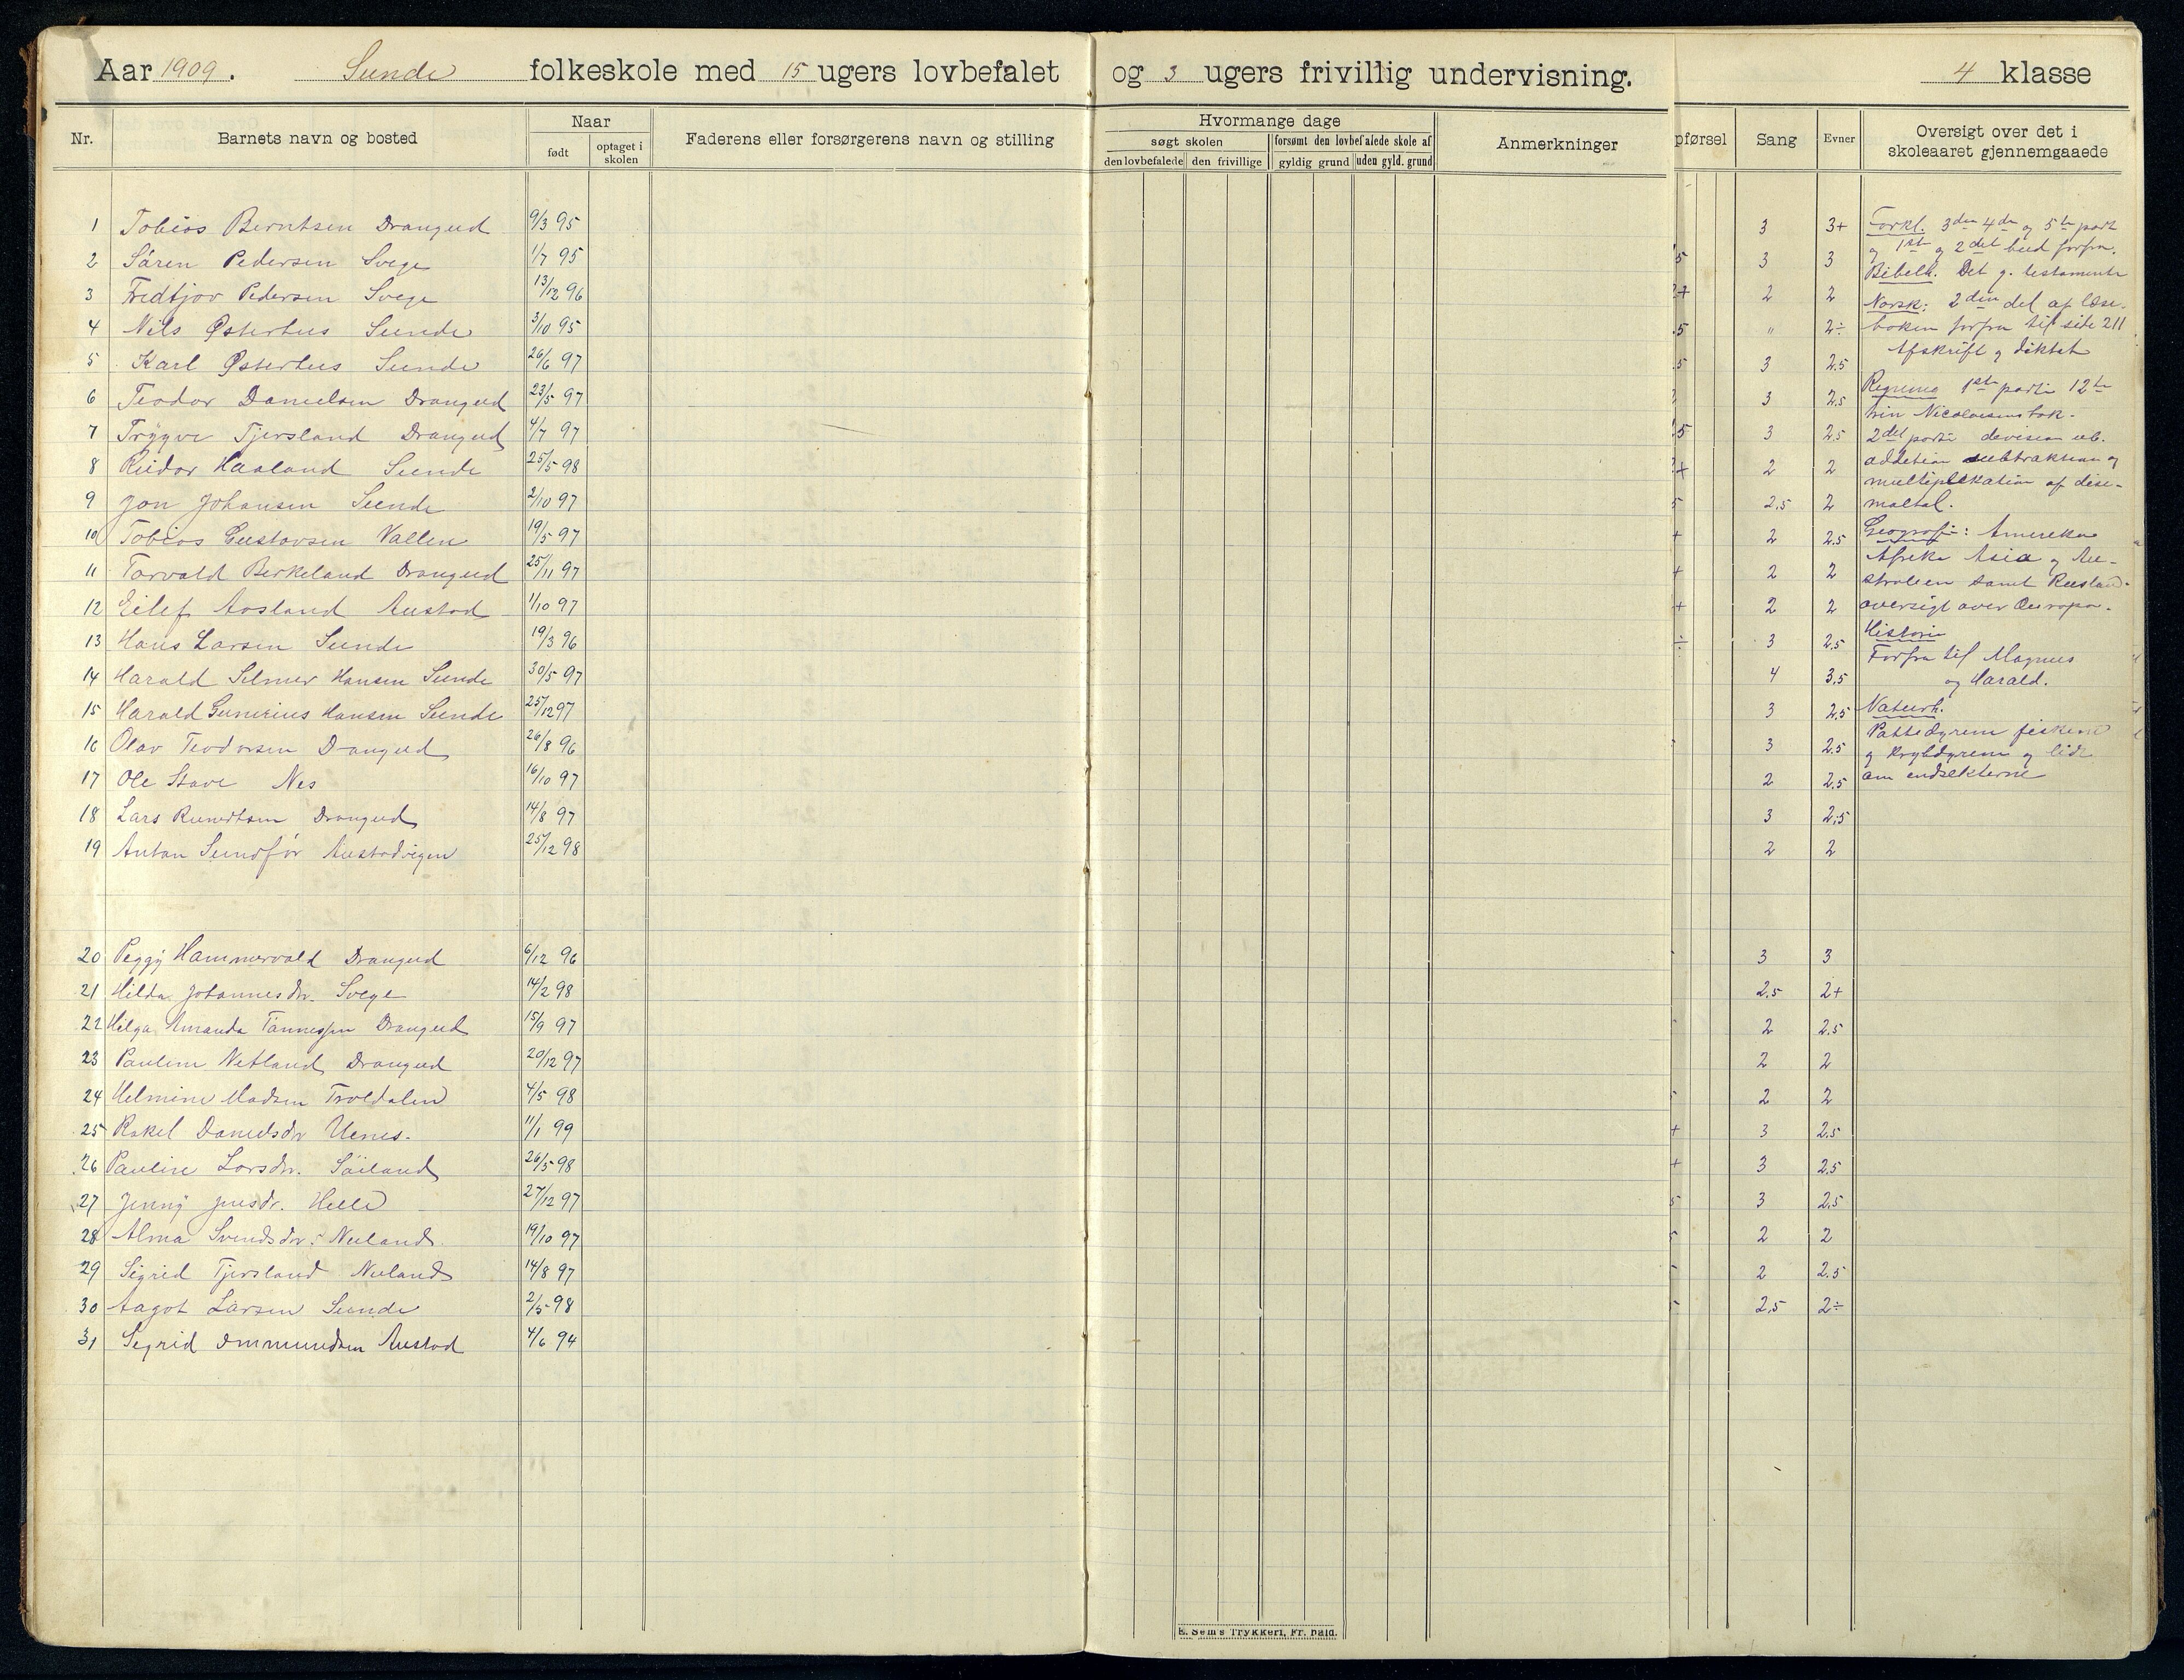 Aar 1909. Sunde folkeskole med 15 ugers lovbefalet og 3 ugers frivillig undervisning. 4 klasse
Nr. Barnets navn og bosted Naar født optaget i skolen Faderens eller forsørgerens navn og stilling
Hvormange dage
søgt skolen forsømt den lovbefalede skole af
den lovbefalede den frivillige gyldig grund uden gyld. grund
Anmerkninger
pførsel Sang Evner Oversigt over det i skoleaaret gjennemgaaede
1 Tobias Berntsen Drangeid 9/3 95 3 3+
2 Sören Pedersen Svege 1/7 95 3 3
3 Fredtjov Pedersen Svege 13/12 96 2 2
4 Nils Østerhus Sunde 3/10 95 " 2÷
5 Karl Østerhus Sunde 26/6 97 3 2.5
6 Teodor Danielsen Drangeid 23/5 97 3 2.5
7 Trygve Tjersland Drangeid 4/7 97 3 2.5
8 Reidar Haaland Sunde 25/5 98 2 2
9 Jon Johansen Sunde 2/10 97 2.5 2
10 Tobias Gustavsen Vallen 19/5 97 2 2.5
11 Torvald Birkeland Drangeid 25/11 97 2 2
12 Eilef Aasland Austad 1/10 97 2 2
13 Hans Larsen Sunde 19/3 96 3 2.5
14 Harald Selmer Hansen Sunde 30/5 97 4 3.5
15 Harald Gunerius Hansen Sunde 25/12 97 3 2.5
16 Olav Teodorsen Drangeid 26/8 96 3 2.5
17 Ole Stave Nes 16/10 97 2 2.5
18 Lars Drangeid 14/8 97 3 2.5
19 Anton Sundför Austadvigen 25/12 98 2 2
20 Peggy Hammervold Drangeid 6/12 96 3 3
21 Hilda Johannesdr. Svege 14/2 98 2.5 2+
22 Helga Amanda Tönnessen Drangeid 15/9 97 2 2.5
23 Pauline Netland Drangeid 20/12 97 2 2
24 Helmine Madsen Troldalen 4/5 98 2 2
25 Rakel Danielsdr Uenes. 11/1 99 3 2.5
26 Pauline Larsdr. Söiland 26/5 98 3 2.5
27 Jenny Jensdr. Helle 27/12 97 3 2.5
28 Alma Svendsdr. Nuland 19/10 97 2 2
29 Sigrid Tjersland Nuland 14/8 97 2 2.5
30 Aagot Larsen Sunde 2/5 98 2.5 2÷
31 Sigrid Ommundsen Austad 4/6 94
Forkl. 3die 4de og 5te part
og 1ste og 2det bud forfra.
Bibelh. Det g. testamente
Norsk: 2den del af læse-
boken forfra til side 211
Afskrift og diktat
Regning 1ste parti 12te
trin Nicolaisens bok.
2det parti
addition subtraktion og
multiplikation af desi-
maltal.
Geografi: Amerika
Afrika Asia og Au-
stralien samt Rusland.
oversigt over Europa.
Historie
Forfra til Magnus
og Harald.
Naturh.
Pattedyrene fiskene
og krybdyrene og lidt
om endsekterne
E. Sem's Trykkeri, Fr. hald.